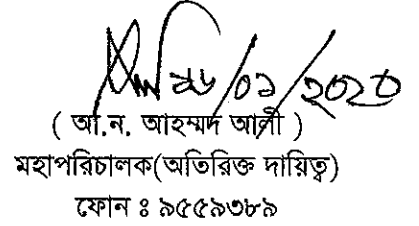 /০১/২০২০
( আ.ন. আহম্মদ আলী )
মহাপরিচালক(অতিরিক্ত দায়িত্ব)
ফোন ঃ ৯৫৫৯৩৮৯